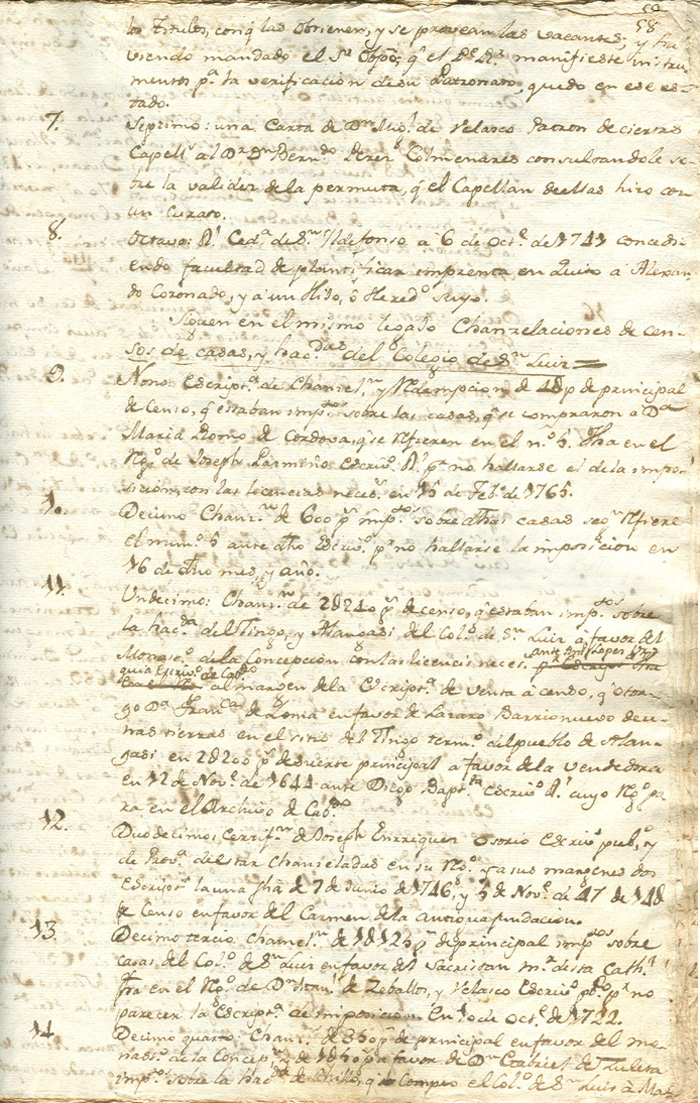 58
los titulos, con q̃ las obtienen, y se provean las vacantes; y ha
viendo mandado el Sr. Obpõ, q̃ el Pe. Rr. manifieste instru
mentos pa. la verificacion de su Patronato, quedo en ese es-
tado.
7. Septimo: una Carta de Dn. de Velasco Patron de ciertas
Capells. al Dr. Dn. Berndo. Perez Colmenares consultandole so
bre la validez de la permuta, q̃ el Capellan de ellas hizo con
un Curato.
8. Octavo: Rl. Ceda. de Sn. Ildefonso a 6 de Octe. de 1741 concedi
endo facultad de plantificar imprenta en Quito à Alexan
do Coronado, y a un Hijo, ò Hered.o suyo.
Siguen en el mismo legado Chanzelaciones de cen-
sos de casas, y hacdas. del Colegio de Sn. Luis
9. Nono Escripta. de Chanceln. y Redempcion de principal
de Censo, q̃ estaban impos. sobre las casas, q̃ se compraron a Da.
Maria Romo de Cordova, q̃ se refieren en el no. 5. Fha en el
Rego. de Joseph Parmiño Escrivo. Rl. pr. no hallarse el de la impo-
sicion, con las licencias neces. en 15 de Febo. de 1765.
10. Decimo Chanzn. de 600 ps. imptos. sobre dhas casas segn. refiere
el num. 5 ante dho Escrivo. pr. no hallarse la imposicion en
16 de dho mes, y año.
11. Undecimo: Chanzn. de 2U240 ps. de censo, q̃ estaban imptos. sobre
la hacda. del Tingo, y Alangasi del Colo. de Sn. Luis à favor del
Monasto. de la Concepcion con las licencis neces. ante Anto. Lopez
Escrivo. de Cabdo.
al margen de la Escripta. de venta à censo, q̃ otor-
go Da. Franca. de Zonia en favor de Lazaro Barrionuevo de u-
nas tierras en el sitio del Tingo termo. del pueblo de Alan-
gasi en 2U200 ps. de suerte principal a favor de la vendedora
en 12 de Nove. de 1644 ante Diego Bapta. Escrivo. Rl. cuyo Rego. pa-
ra en el Archivo de Cabdo.
12. Duodecimo: Certifn. de Joseph Enrriquez Osorio Escrivo. pubo. y
de Prova. de estar Chanseladas en su Rego. y a sus margenes dos
Escripts. la una fha de 7 de Junio de 1746, y 3 de Nove. de 47 de
de Censo en favor del Carmen de la antigua fundacion.
13. Decimo tercio Chanceln. de 1U125 ps. de principal imptos. sobre
casas del Colo. de Sn. Luis en favor del Sacristan mr. de esta Cathl.
Fha en el Rego. de Dn. de Zeballos, y Velasco Escrivo. pbo. pr. no
parecer la Escripta. de imposicion. En 10 de Octe. de 1722.
14. Decimo quarto: Chanzn. de ps. de principal en favor del mo-
nasto. de la Concepn. y de ps. a favor de Dn. Gabriel de Zuleta
impos. sobre la hacda. de Chillo, q̃ Compro el Colo. de Sn. Luis à